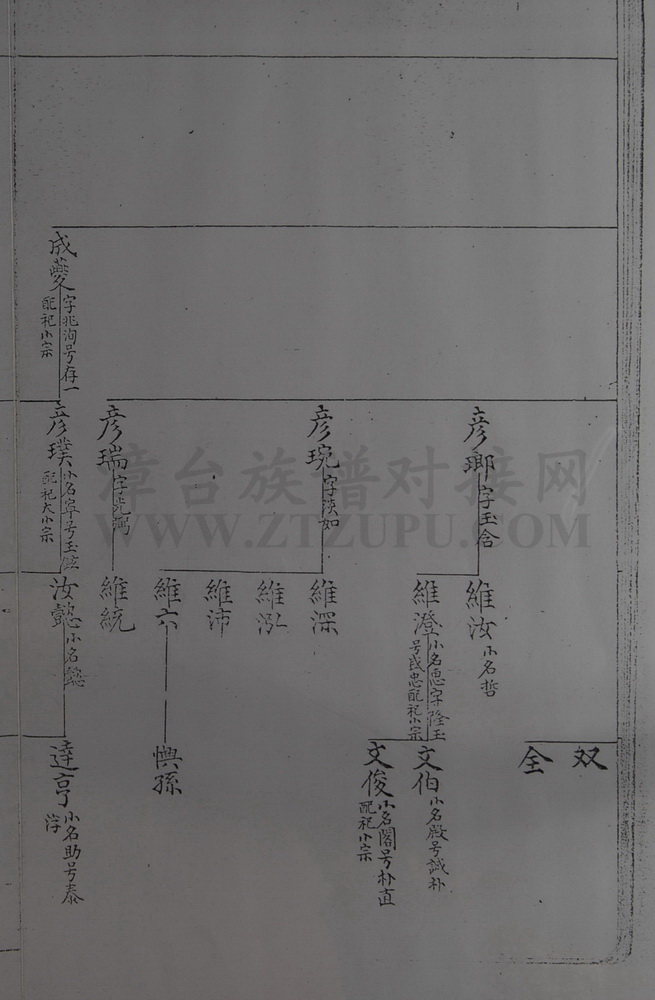 双
全
彦卿字玉含
維汝小名哲
維澄小名惠字隆玉
号誠忠配祀小宗
文伯小名殿号誠朴
文俊小名閣号朴直
配祀小宗
彦琬字淡如
維深
維泓
維沛
維六
懊孫
彦瑞字
維統
成夔字兆洵号存一
配祀小宗
彦璞小名
号玉
配祀大小宗
汝懿小名懿
達亨小名助号泰
漳台族谱对接网
WWW.ZTZUPU.COM